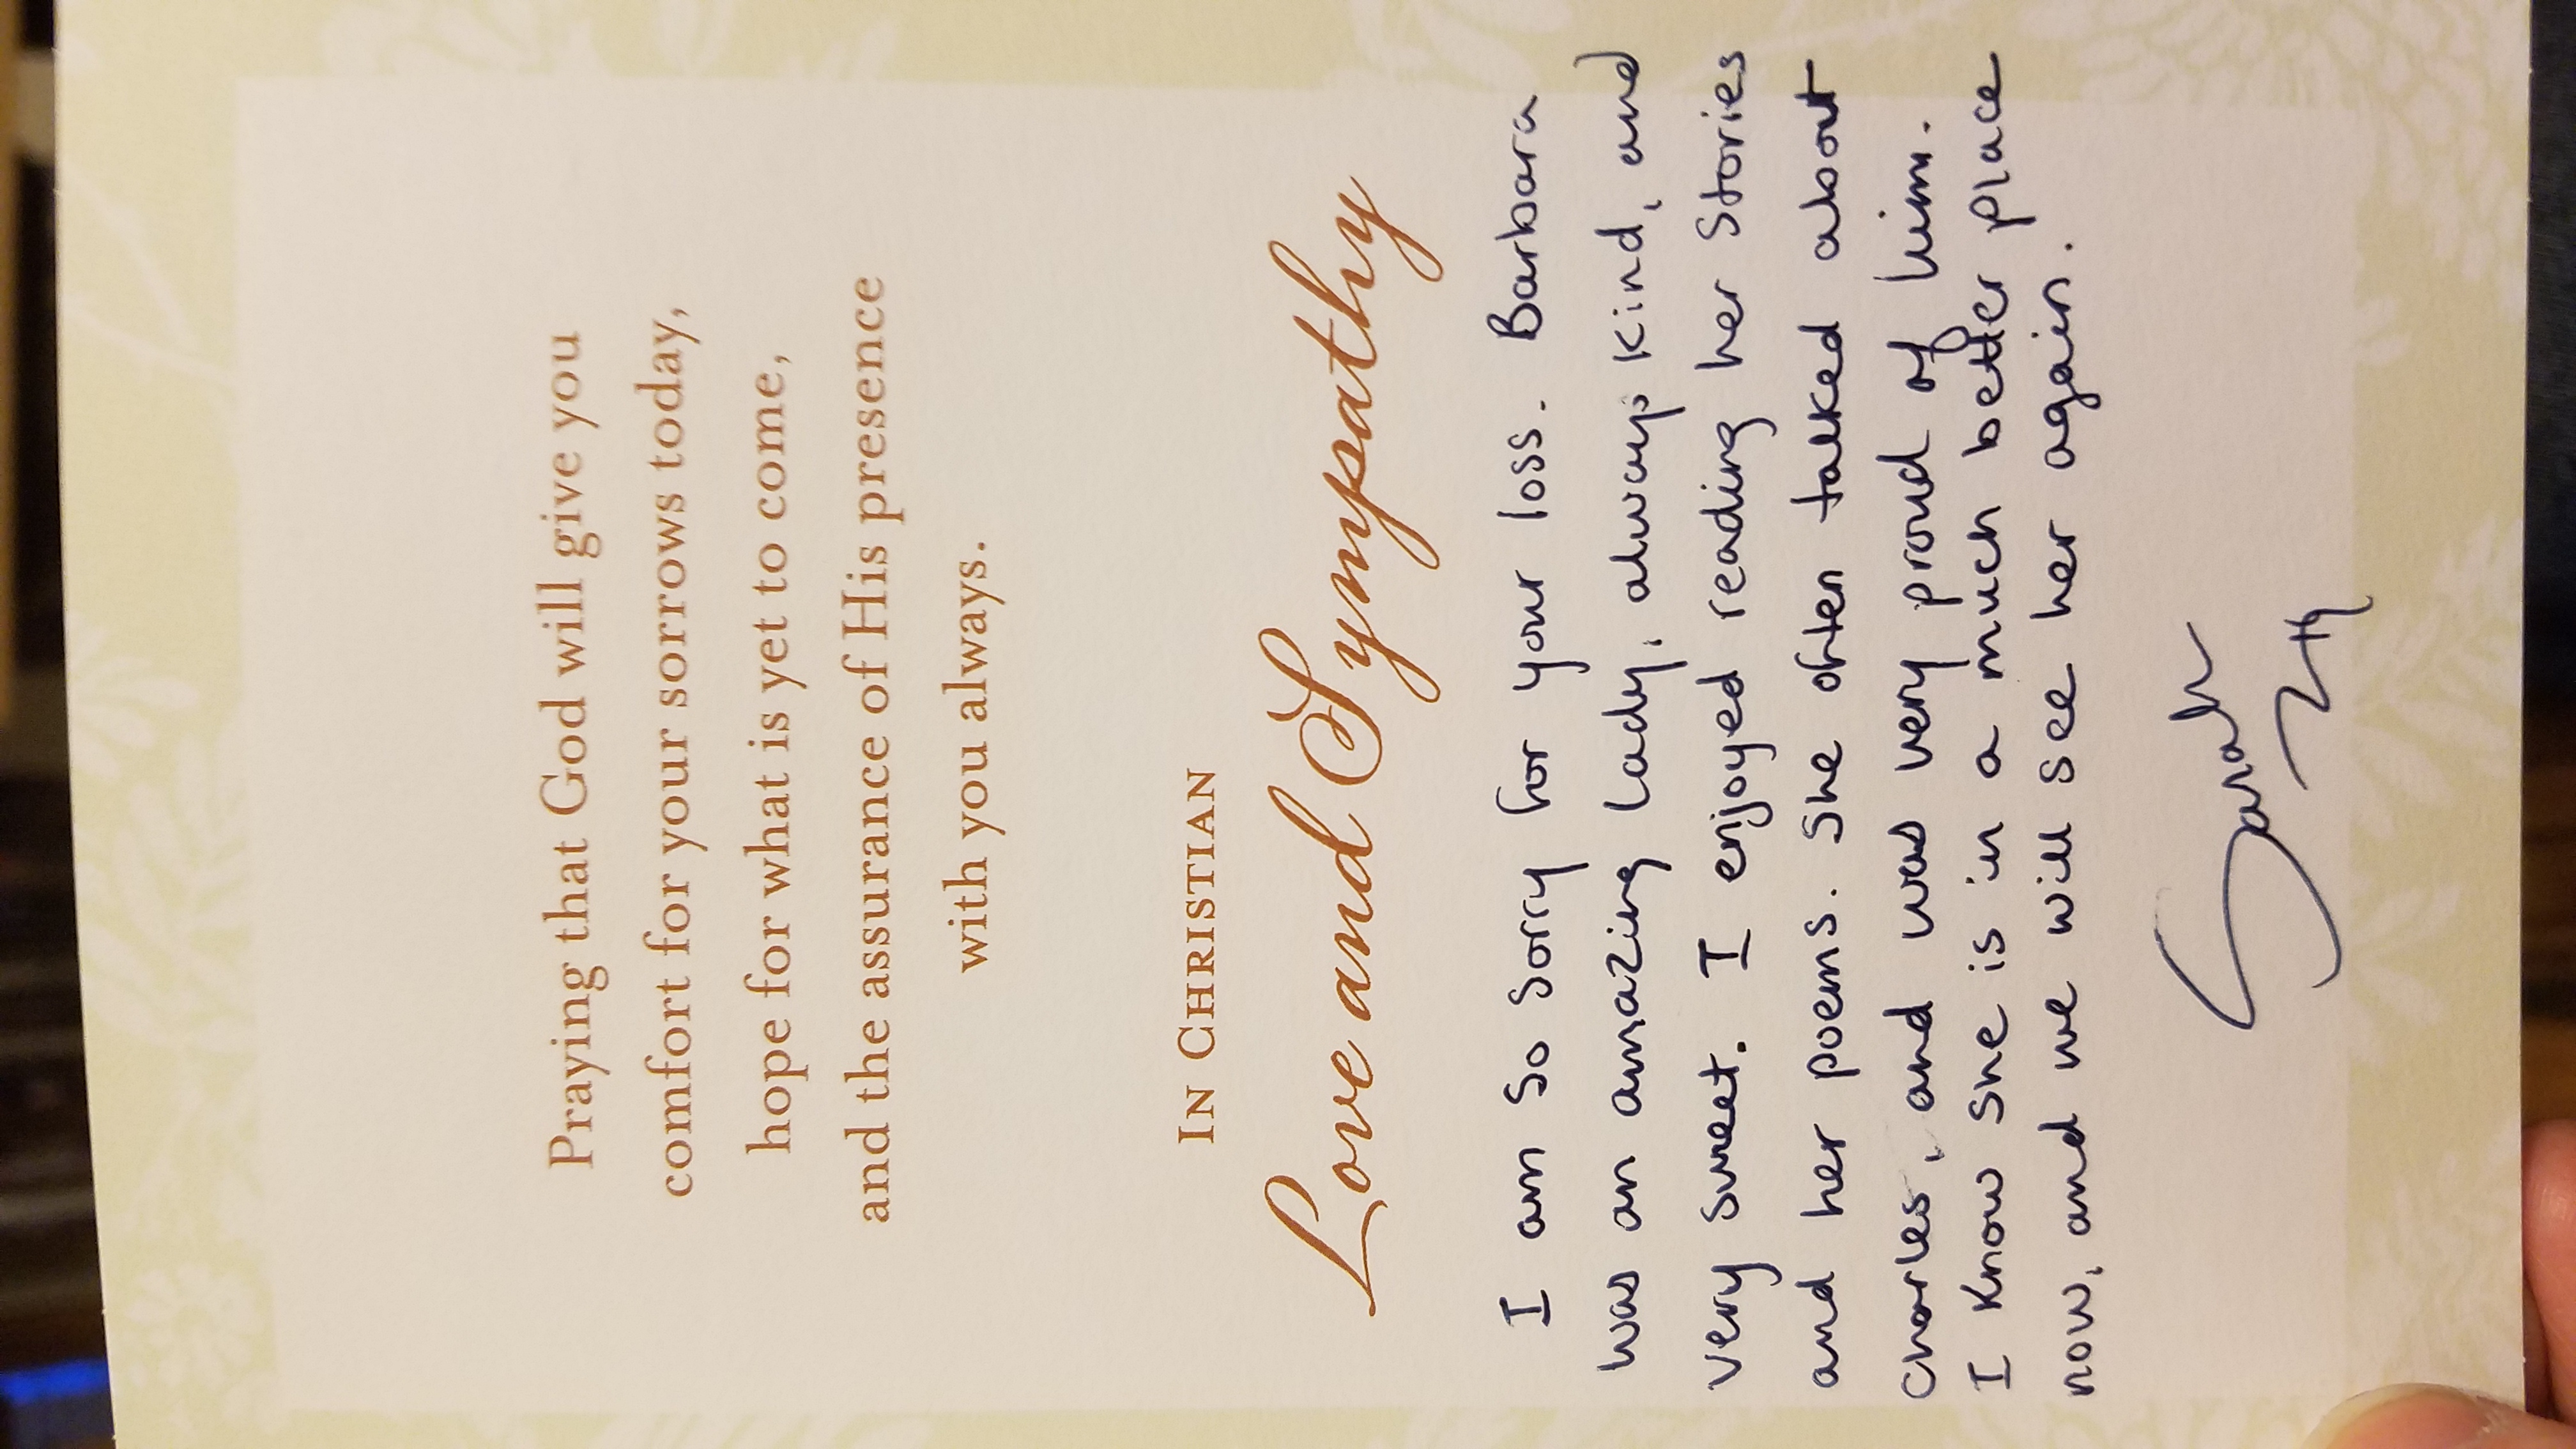 Praying that God will give you
comfort for your sorrows today,
hope for what is yet to come,
and the assurance of His presence
with you always.
IN CHRISTIAN
Love and Sympathy
I am so sorry for your loss. Barbara
was an amazing lady, always kind, and
very sweet. I enjoyed reading her stories
and her poems. She often talked about
Charles, and was very proud of him.
I know she is in a much better place
now, and we will see her again.
Sarah